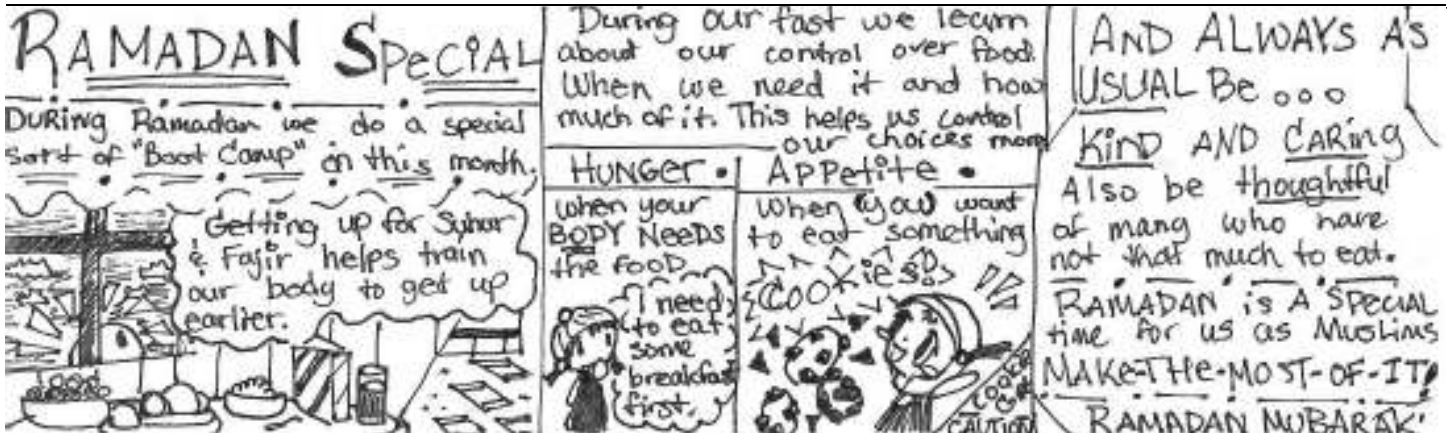 RAMADAN SPECIAL
DURING Ramadan we do a special
sort of "Boot Camp" in this month.
Getting up for Suhur
& Fajir helps train
our body to get up
earlier.
During our fast we learn
about our control over food.
When we need it and how
much of it. This helps us control
our choices more
HUNGER.
when your
BODY NEEDS
the FOOD
I need
to eat
some
breakfast
first.
APPetite.
When you want
to eat something
COOKIES!
CAUTION
AND ALWAYS AS
USUAL BE...
KIND AND CARING
Also be thoughtful
of many who have
not that much to eat.
RAMADAN is A SPECIAL
time for us as Muslims
MAKE-THE-MOST-OF-IT!
RAMADAN MUBARAK